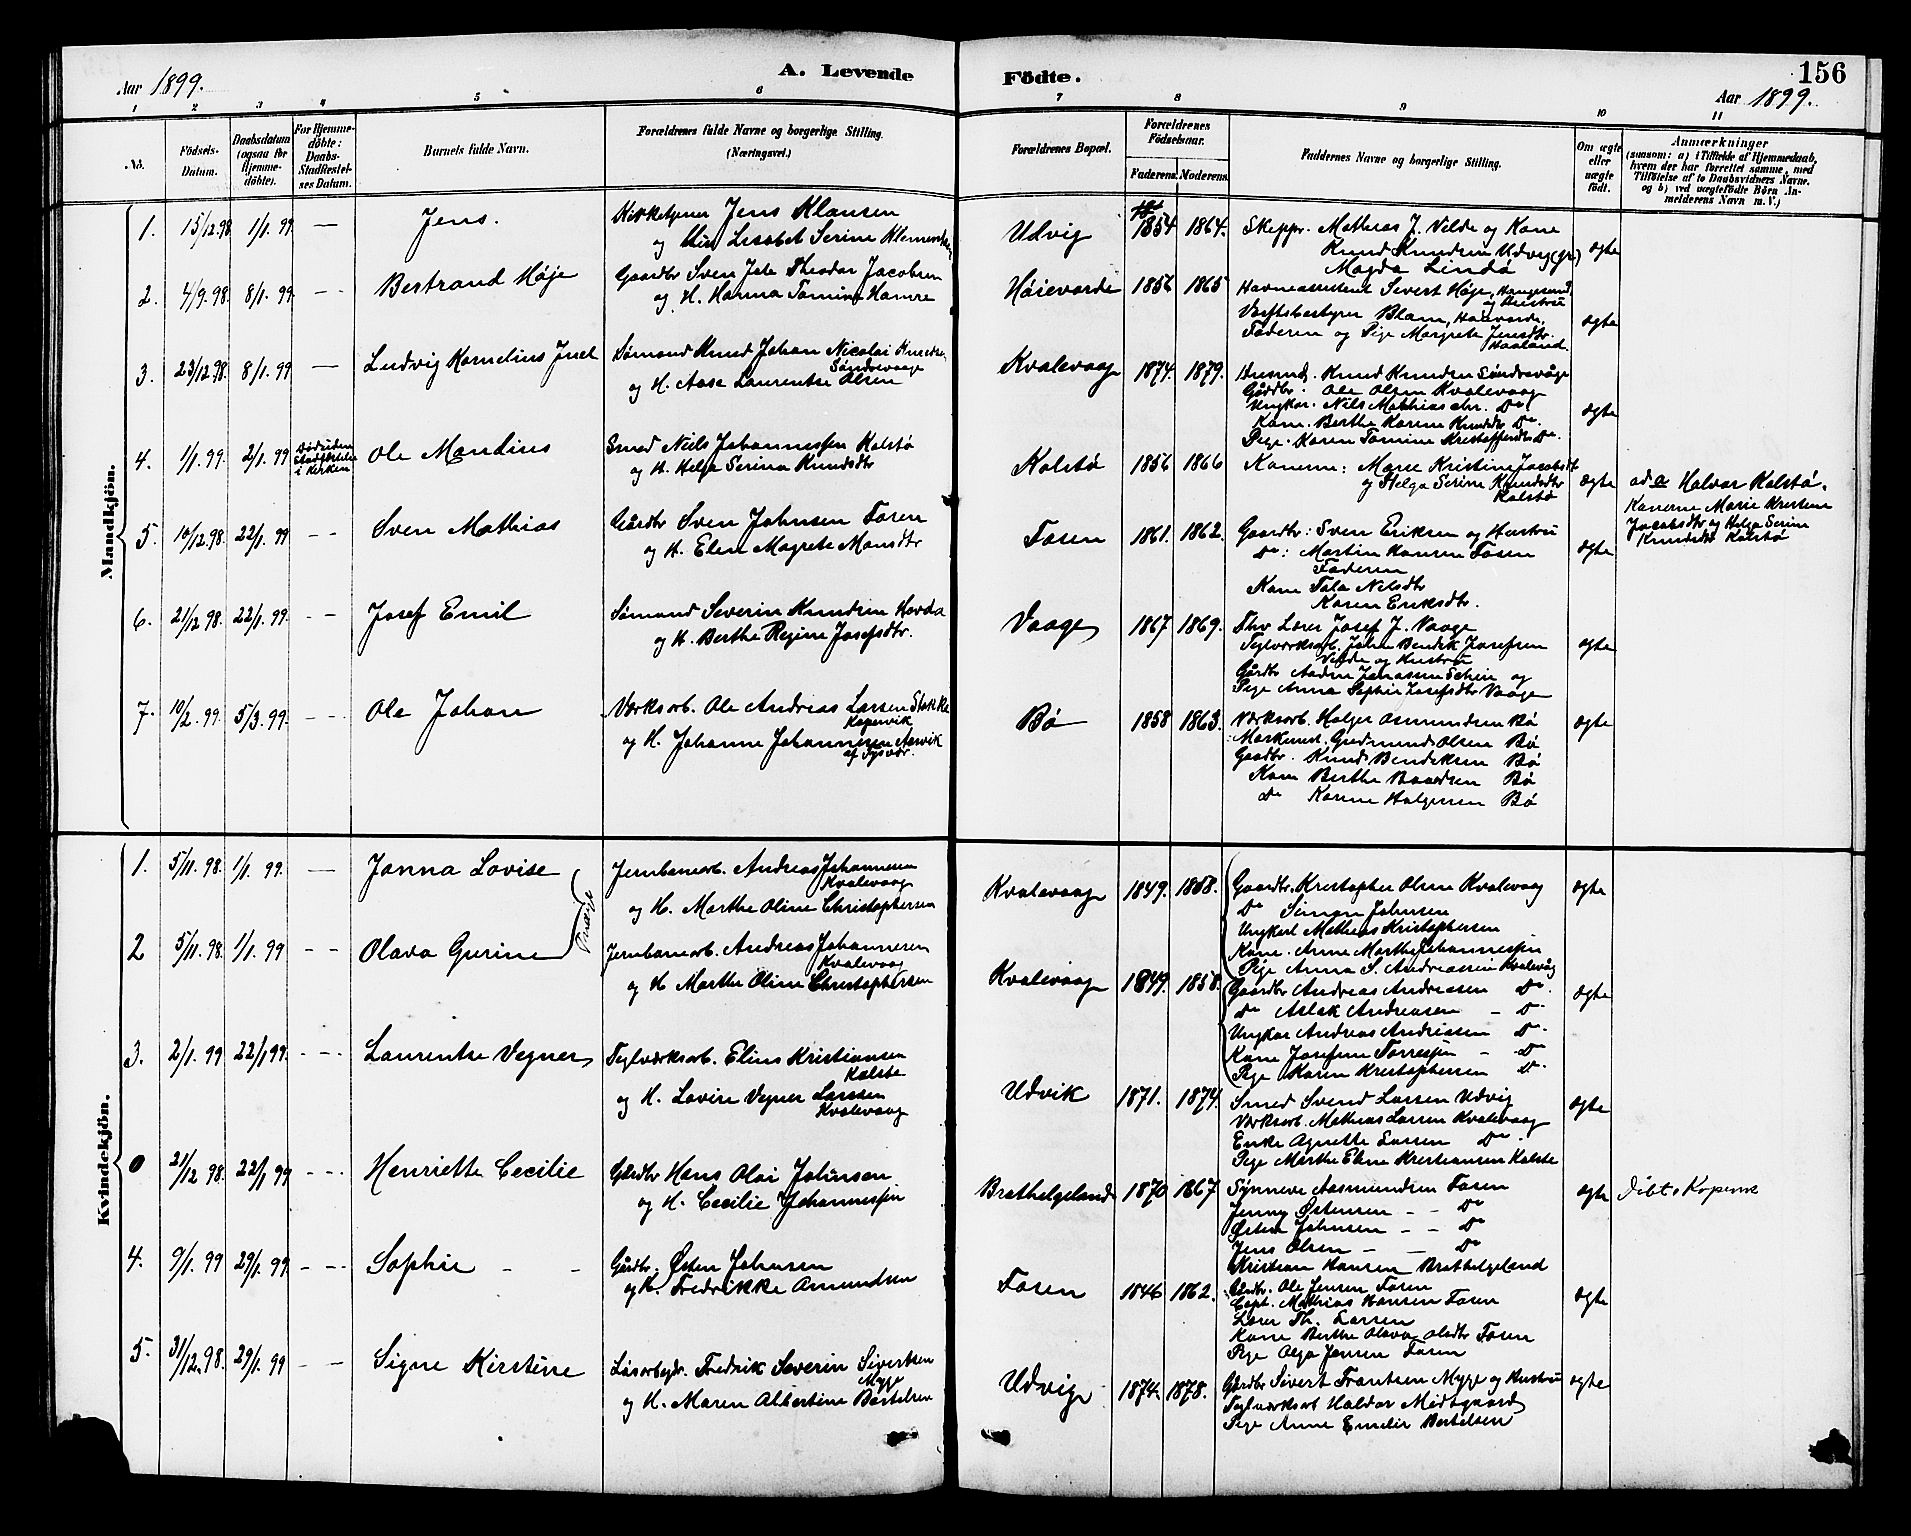 Aar 1899.
A. Levende
Födte.
156
Aar 1899.
1 2 3 4 5 6 7 8 9 10 11
No.
Födsels-Datum.
Daabsdatum (ogsaa for Hjemme-döbte).
For Hjemme-döbte: Daabs-Stadfæstel-ses Datum.
Barnets fulde Navn.
Forældrenes fulde Navne og borgerlige Stilling. (Næringsvei.)
Forældrenes Bopæl.
Forældrenes Födselsaar.
Faderens. Moderens.
Faddernes Navne og borgerlige Stilling.
Om ægte eller uægte födt.
Anmærkninger
(saasom: a) i Tilfælde af Hjemmedaab,
hvem der har forrettet samme, med
Tilföielse af to Daabsvidners Navne.
og b) ved uægtefödte Börn An-
melderens Navn m. V.)
Mandkjön.
1. 15/12.98 1/1.99 — Jens. Kirketjener Jens Klausen
og Lisabet Serine
Udvig 1854 1864. Skeppr. Mathias J. Velde og Kone
Knud Knudsen Udvig (gr)
Magda Lindø
ægte
2. 4/9.98. 8/1.99. — Bertrand Høje Gaardbr Sven Theodor Jacobsen
og H. Hanna Tomine Hamre
Høievarde 1856 1865 Havneassistent Sivert Høje, Haugesund
og Hustru
Værftsbestyrer Blom, Haavarde,
Faderen og Pige Margrete Jensdtr.
Haaland.
ægte
3. 23/12.98. 8/1.99 — Ludvig Kornelius Juel Sømand Knud Johan Nicolai
Søndrevaage
og H. Aase Laurentse Olsen
Kvalevaag 1874. 1879. Husmd. Knud Knudsen Søndrevåge
Gårdbr. Ole Olsen Kvalevaag
Ungkar. Nils Mathias chr. Do.
Kone. Berthe Karine Knudsdtr Do.
Pige. Karen Tomine Do.
ægte
4. 1/1.99. 2/1.99 i Kirken Ole Mandius Smed Niels Johannessen Kolstø
og H. Helga Serina Knudsdtr
Kolstø 1856 1866 Konerne: Marie Kristine Jacobsdtr
og Helga Serine Knudsdtr
Kolstø
ægte
ad a Halvor Kolstø.
Konerne Marie Kristine
Jacobsdtr og Helga Serine
Knudsdtr Kolstø
5. 10/12.98. 22/1.99 -- Sven Mathias Gårdbr Sven Johnsen Fosen
og H. Elen Magrete Monsdtr
Fosen 1861. 1862. Gaardbr: Sven Eriksen og Hustru
Do: Martin Hansen Fosen
Faderen
Kone Tala Nilsdtr
Karen Eriksdtr.
ægte
6. 21/12 98. 22/1.99. -- Josef Emil Sømand Severin Knudsen Hovda
og H. Berthe Regine Josefsdtr.
Vaage 1867 1869. Fhv Lærer Josef J. Vaage
Teglværksarb. Johan Bendik Josefsen
Velde og Hustru
Gårdbr Andr. Jonassen og
Pige Anna Sophie Josefsdtr Vaage
ægte
7. 10/2.99. 5/3.99. -- Ole Johan Værksarb. Ole Andreas Larsen Stokke
Kopervik
og H. Johanne Johannesen Aasvik
af Tysvær.
Bø 1858 1863. Værksarb. Holger Asmundsen Bø
Gudmund Olsen Bø
Gaardbr. Knud Bendiksen Bø
Kone Berthe Baardsen Bø
Do Karine Holgersen Bø
ægte
Kvindekjön.
1. 5/11.98. 1/1.99. — Janna Lovise Jernbanearb. Andreas Johannesen
Kvalevaag
og H. Marthe Oline Christophersen
Kvalevaag 1849. 1858. Gaardbr. Kristopher Olsen Kvalevaag
Do Simon Johnsen
Ungkarl Mathias Kristophersen
Kone. Anne Marthe Johannessen
Pige Anna S. Andreassen Kvalevåg
ægte
2 5/11.98. 1/1.99 -- Olava Gurine Jernbanearb. Andreas Johannesen
Kvalevaag
og H Marthe Oline Christophersen
Kvalevaag 1849. 1858. Gaardbr Andreas Andreasen Do.
Do Aslak Andreasen - Do
Ungkar Andreas Andreasen Do.
Kone Josefine Torressen - Do
Pige Karen Kristophersen Do.
ægte
3. 2/1.99 22/1 99. --- Laurentse Vegner Teglværksarb. Elius Kristiansen
Kolstø
og H. Lovise Vegner Larssen
Kvalevaag
Udvik 1871. 1874. Smed Svend Larsen Udvig
Værksarb. Mathias Larsen Kvalevaag
Enke Agnette Larsen Do.
Pige Marthe Eline Kristiansen Kolstø
ægte
0 21/12 98. 22/1 99 --- Henriette Cecilie Gårdbr Hans Olai Johnsen
og H. Cecilie Johannessen
Brathelgeland 1870 1867. Synneve Aasmundsen Fosen
Jenny Østensen -- Do
Østen Johnsen -- Do
Jens Olsen -- Do
Kristian Hansen Brathelgeland
ægte
4. 9/1.99 29/1.99. --- Sophie -- Gårdbr. Østen Johnsen
og H. Fredrikke Amundsen
Fosen 1846 1862. Gårdbr. Ole Jensen Fosen
Capt. Mathias Hansen Fosen
Lærer Th. Larsen
Kone Berthe Olava Fosen
Pige Olga Jensen Fosen
ægte
5. 31/12.98. 29/1.99 -- Signe Kirstine Løsarbejdr. Fredrik Severin Sivertsen
Myge
og H. Maren Albertine Bertelsen
Udvig 1874. 1878. Gårdbr Sivert Frantsen Myge og Hustru
Teglværksarb Haldor Midtgaard
Pige Anne Emilie Bertelsen
ægte